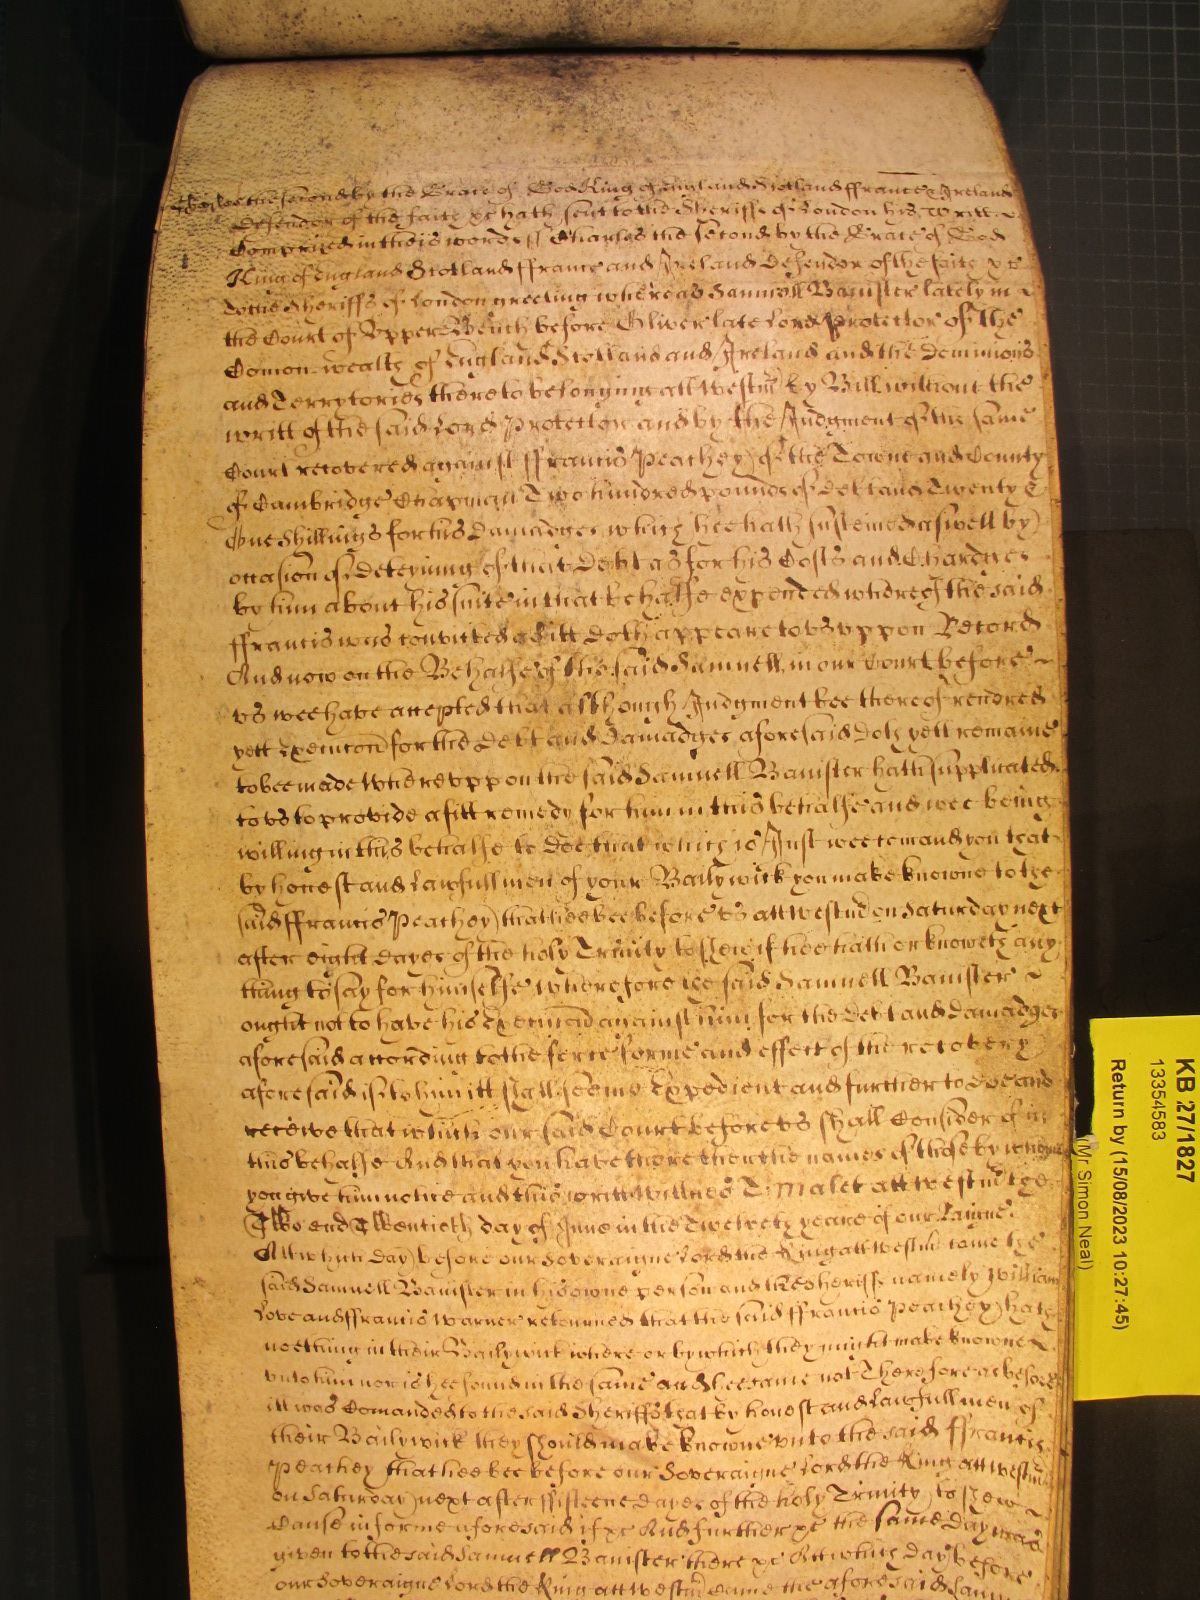 Charles the second by the Grace of God King of England Scotland ffrance & Ireland
Defendor of the faith &c hath sent to the Sheriffs of London his Writt
Comprized in theis words ss Charles the second by the Grace of God
King of England Scotland ffrance and Ireland Defendor of the faith &c
To the Sheriffs of London greeting whereas Samuell Banister lately in
the Court of Upper Bench before Oliver late Lord Protector of the
Comon wealth of England Scotland and Ireland and the Dominions
and Terrytories thereto belonging att Westmr by Bill without the
writt of the said Lord Protector and by the Judgment of the same
Court recovered against ffrancis Peachey of the Towne and County
of Cambridge Chapman Two hundred pounds of Debt and Twenty &
One Shillings for his Damadges which hee hath susteined aswell by
occasion of Deteyning of that Debt as for his Costs and Chardges
by him about his suite in that behalfe expended whereof the said
ffrancis was convicted as itt doth appeare to us uppon Record
And now on the Behalfe of the said Samuell in our Court before
us wee have accepted that although Judgment bee thereof rendred
yett Execucon for the Debt and Damadges aforesaid doth yett remaine
to bee made Whereuppon the said Samuell Banister hath supplicated
to us to provide a fitt remedy for him in this behalfe and wee being
willing in this behalfe to doe that which is Just wee comand you that
by honest and Lawfull men of your Bailywick you make knowne to the
said ffrancis Peachey that hee bee before us att Westmr on Saturday next
after eight dayes of the holy Trinity to shew if hee hath or knoweth any
thing to say for himselfe wherefore the said Samuell Banister
ought not to have his Execucon against him for the Debt and Damadges
aforesaid according to the force forme and effect of the recovery
aforesaid if to him itt shall seeme Expedient and further to doe and
receive that which our said Court before us shall Consider of in
this behalfe And that you have there then the names of those by whome
you give him notice and this writt Wittnes T: Malet att Westmr the
Two and Twentieth day of June in the Twelveth yeare of our Raigne
Att which day before our Soveraigne Lord the King att Westmr came the
said Samuell Banister in his owne person and the Sheriffs namely William
Love and ffrancis Warner retourned that the said ffrancis Peachey hath
noething in their Bailywick where or by which they might make knowne
unto him nor is hee found in the same and hee came not Therefore as before
itt was Comanded to the said Sheriffs that by honest and Lawfull men of
their Bailywick they should make knowne unto the said ffrancis
Peachey that hee bee before our Soveraigne Lord the King att Westmr
on Saturday next after ffifteene dayes of the holy Trinity to shew
Cause in forme aforesaid if &c And further &c the same Day was
given to the said Samuell Banister there &c Att which day before
our Soveraigne Lord the King att Westmr came the aforesaid
KB 27/1827
13354583
Return by (15/08/2023 10:27:45)
(Mr Simon Neal)